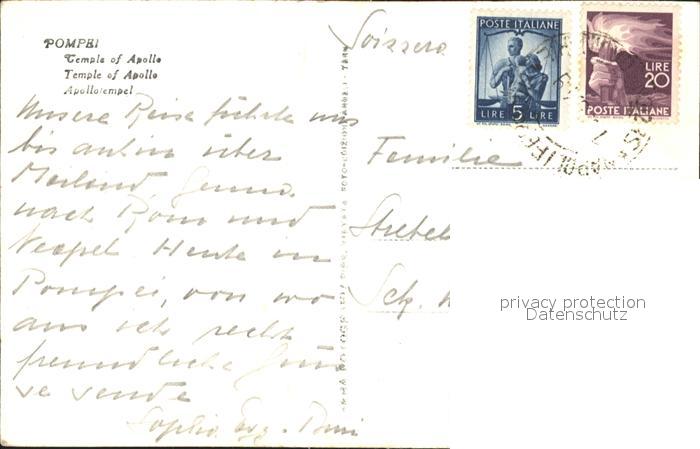 POMPEI
Temple of Apollo
Temple of Apollo
Apollotempel
Unsere Reise führte uns
bis anhin über
Mailand, Genua
nach Rom und
Neapel. Heute in
Pompei, von wo
aus ich recht
freundliche Grüs
se sende
Svizzera
Familie
Strebel
POSTE ITALIANE
LIRE 5 LIRE
LIRE
20
POSTE ITALIANE
privacy protection
Datenschutz